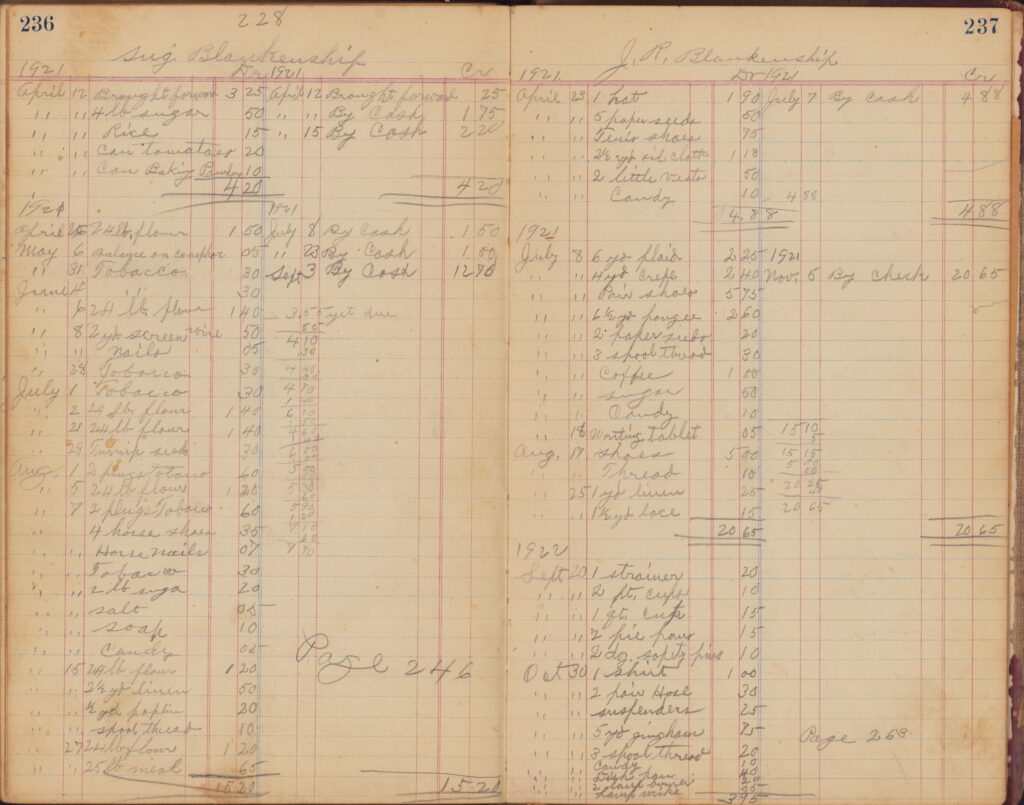 236
228
Sug Blankenship
1921 Dr 1921 Cr
April 12 Brought forward 3 25 April 12 Brought forward 25
" " 4 lb sugar 50 " " By Cash 1 75
" " Rice 15 " 15 By Cash 2 20
" " Can tomatoes 20
" " Can Baking Powder 10
4 20 4 20
1921 1921
April 25 24 lb. flour 1 50 July 8 By Cash 1 50
May 6 Balance on 05 " 23 By Cash 1 00
" 31 Tobacco 30 Sept 3 By Cash 12 70
June 4 " " 30
" 6 24 lb. flour 1 40 3.55 yet due
" 8 2 yd screen wire 50 55
" " Nails 05 4 10
" 28 Tobacco 30
July 1 Tobacco 30
" 2 24 lb. flour 1 40
" 21 24 lb flour 1 40
" 28 Turnip seeds 30
Aug. 1 2 plugs Tobacco 60
" 5 24 lb flour 1 20
" 7 2 plugs Tobacco 60
" " 4 horse shoes 35
" " Horse nails 07
" " Tobacco 30
" " 2 lb suga 20
" " salt 05
" " soap 10
" " Candy 05
Page 246
" 15 24 lb flour 1 20
" " 2½ yd linen 50
" " ½ yd poplin 20
" " spool thread 10
" 27 24 lb flour 1 20
" " 25 lb meal 65
15 20 15 20
237
J. R. Blankenship
1921 Dr 1921 Cr
April 23 1 hat 1 90 July 7 By Cash 4 88
" " 5 paper seeds 50
" " Tenis shoes 95
" " 2½ yd oil cloth 1 13
" " 2 little vests 50
" " Candy 10 4 88
4.88 4 88
1921
July 8 6 yd plaid 2 25 1921
" " 4 yd Crepe 2 40 Nov. 5 By Check 20 65
" " Pair shoes 5 75
" " 6½ yd pongee 2 60
" " 2 paper seeds 20
" " 3 spool thread 30
" " Coffee 1 00
" " sugar 50
" " Candy 10
" 18 Writing tablet 05 15 10
Aug. 17 shoes 5 00 15 15
" " Thread 10
" 25 1 yd linen 25 20 25
" " 1½ yd lace 15 20 65
20 65 20 65
1922
Sept 20 1 strainer 20
" " 2 pt. cups 10
" " 1 qt. cup 15
" " 2 pie pans 15
" " 2 doz safety pins 10
Oct 30 1 Shirt 1 00
" " 2 pair Hose 30
" " suspenders 25
" " 5 yd gingham 75 Page 263
" " 3 spool thread 20
" " Candy 10
" " Dish pan 40
" " 2 lamp burner
" " Lamp wicks
3 95